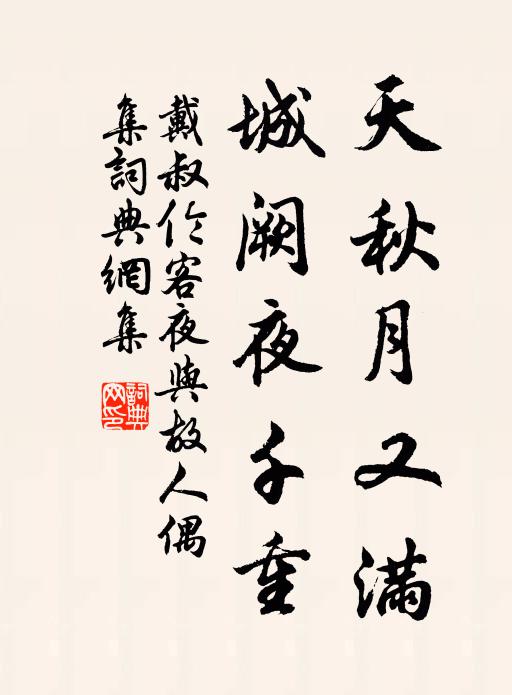 天秋月又满
城阙夜千重
戴叔伦客夜与故人偶
集词典网集
词典网印